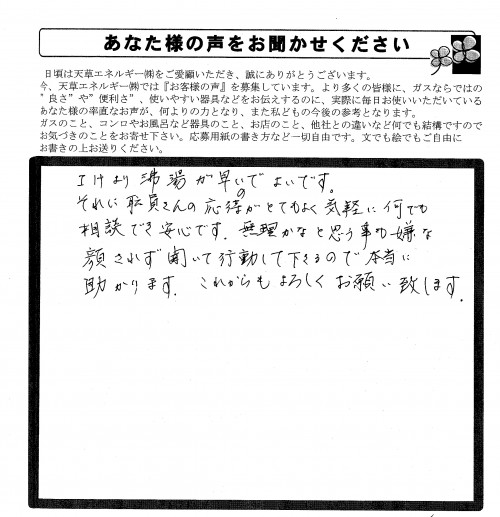 あなた様の声をお聞かせください
日頃は天草エネルギー㈱をご愛顧いただき、誠にありがとうございます。
今、天草エネルギー㈱では『お客様の声』を募集しています。より多くの皆様に、ガスならではの
”良さ”や”便利さ”、使いやすい器具などをお伝えするのに、実際に毎日お使いいただいている
あなた様の率直なお声が、何よりの力となり、また私どもの今後の参考となります。
ガスのこと、コンロやお風呂など器具のこと、お店のこと、他社との違いなど何でも結構ですので
お気づきのことをお寄せ下さい。応募用紙の書き方など一切自由です。文でも絵でもご自由に
お書きの上お送りください。
エけより沸湯が早いのでよいです。
それに職員さんの応待がとてもよく気軽に何でも
相談でき安心です。無理かなと思う事も嫌な
顔されず聞いて行動して下さるので本当に
助かります。これからもよろしくお願い致します。